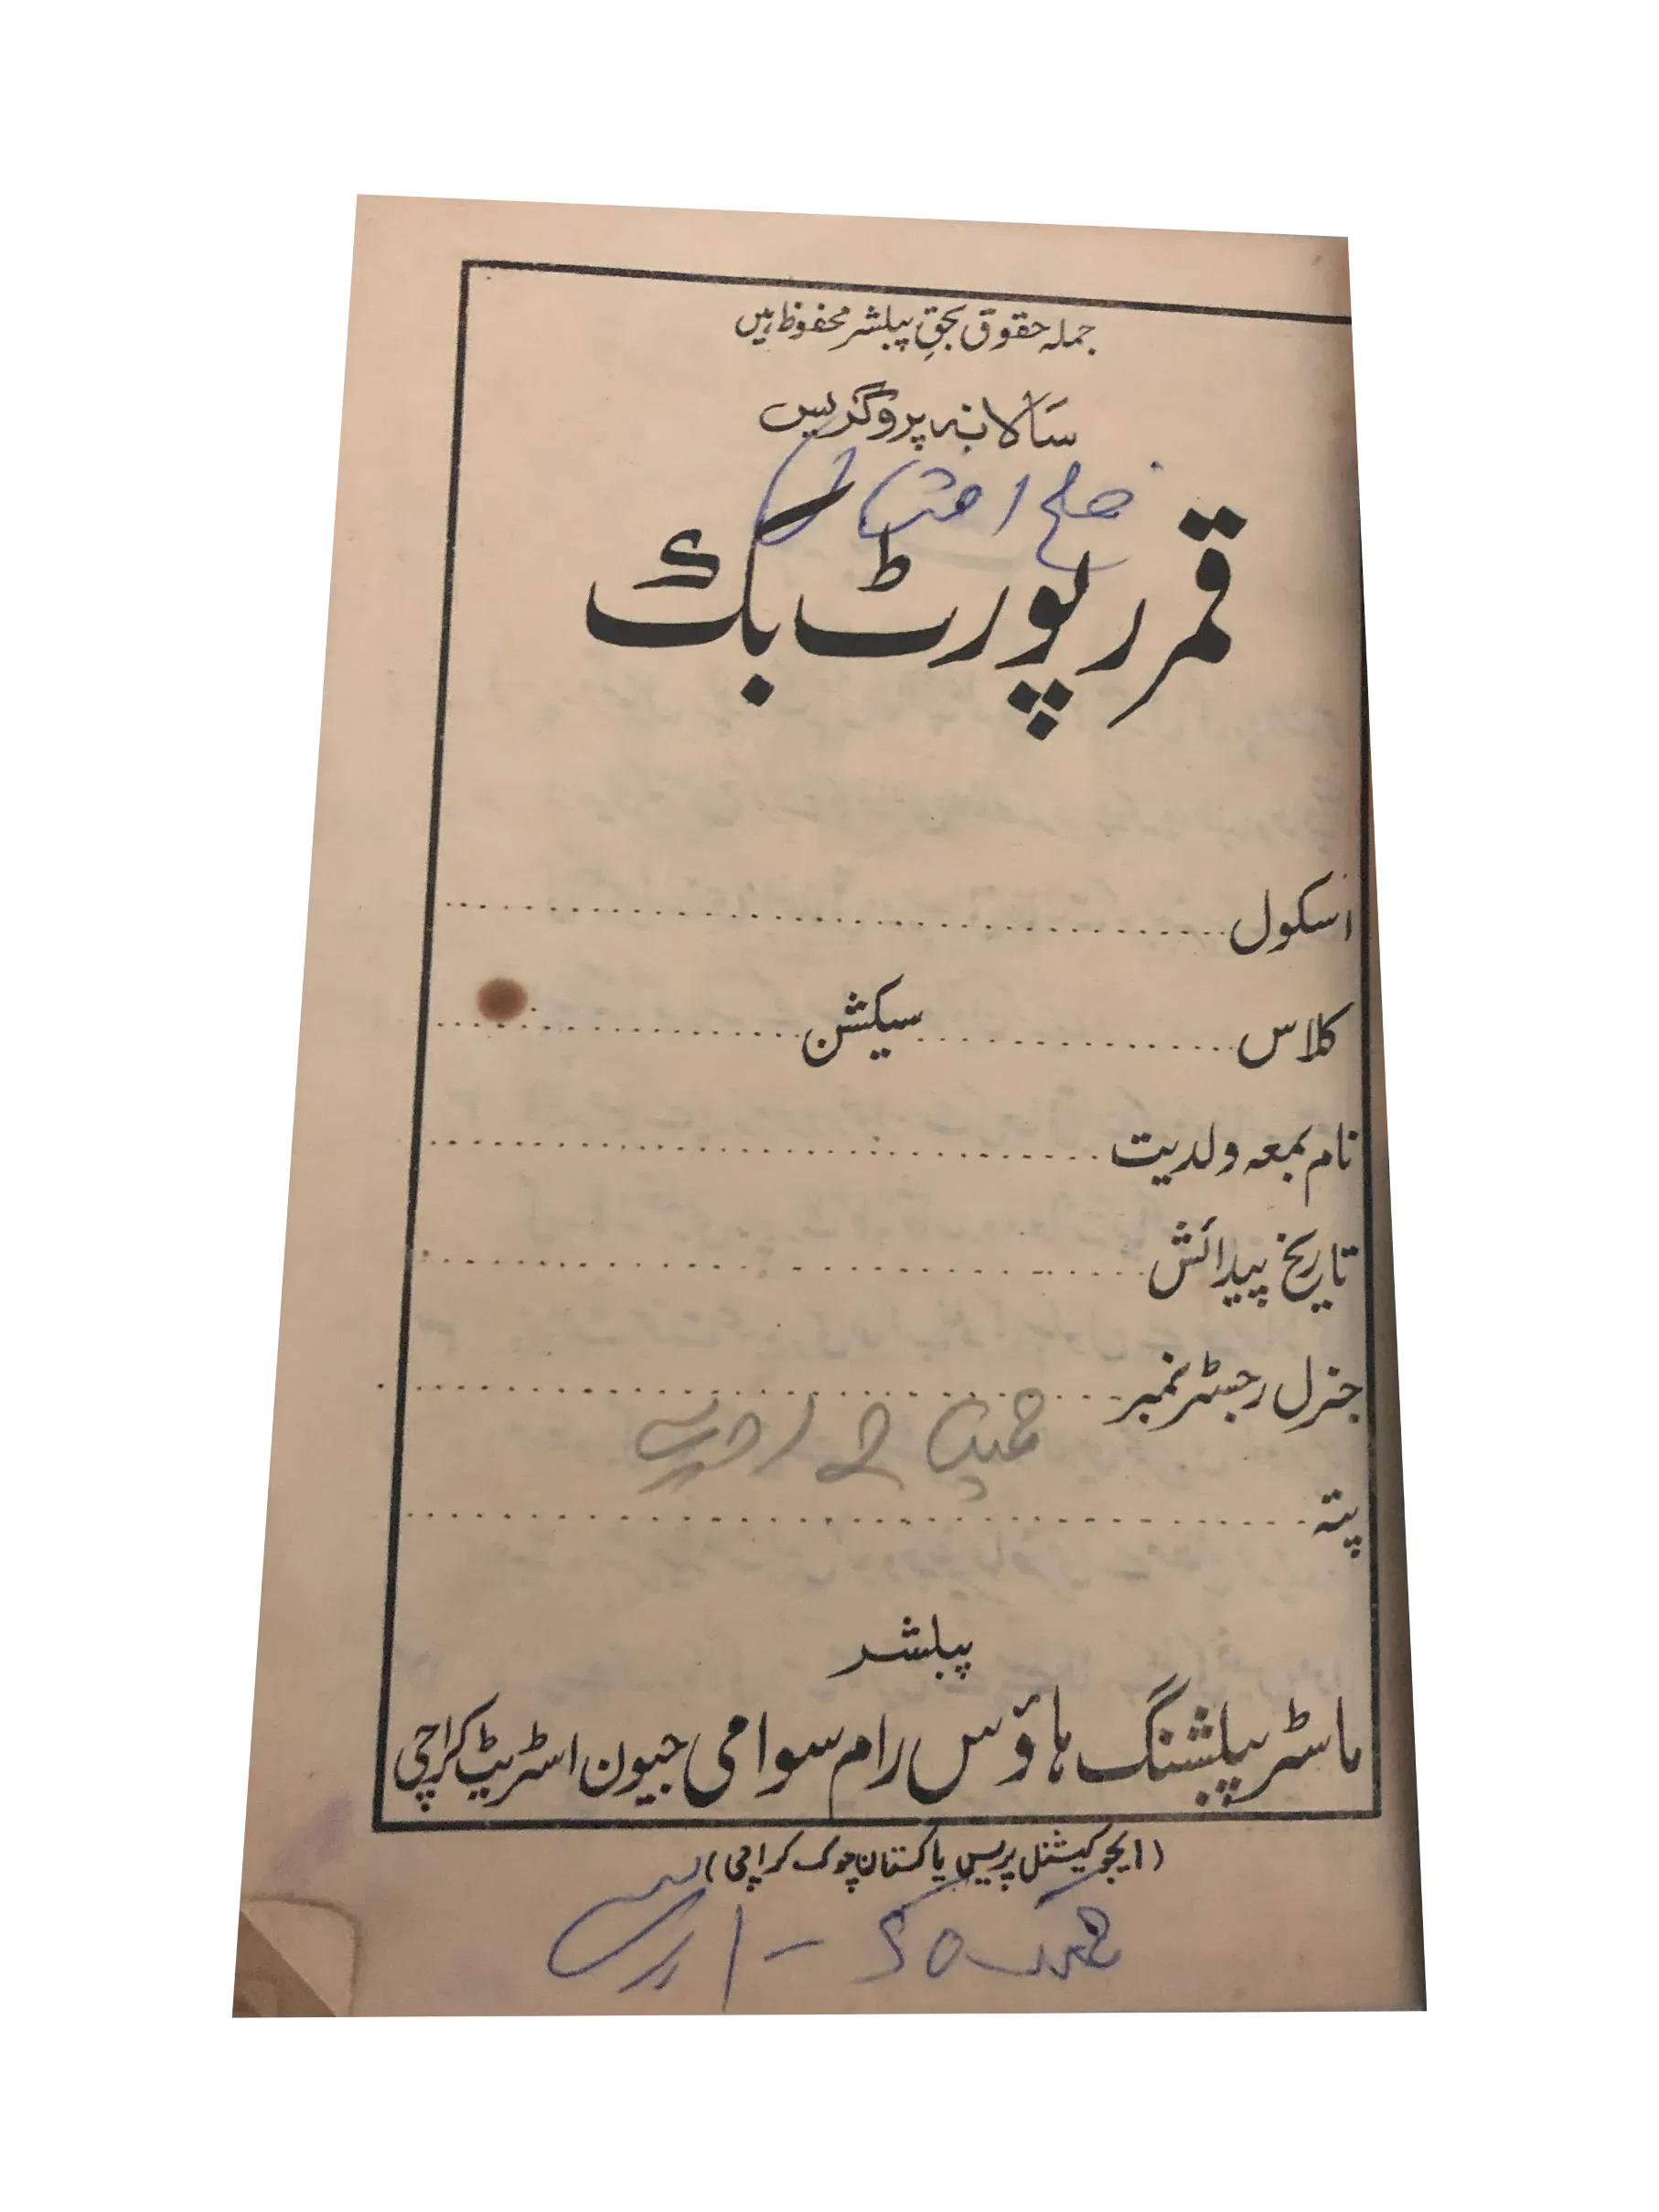 جملہ حقوق بحقِ پبلشر محفوظ ہیں
سالانہ پروگریس
قمر رپورٹ بک
اسکول
کلاس سیکشن
نام بمعہ ولدیت
تاریخ پیدائش
جنرل رجسٹر نمبر
پتہ
پبلشر
ماسٹر پبلشنگ ہاؤس رام سوامی جیون اسٹریٹ کراچی
(ایجوکیشنل پریس پاکستان چوک کراچی)